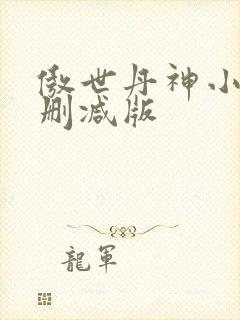 傲世丹神小
删减版
龍軍